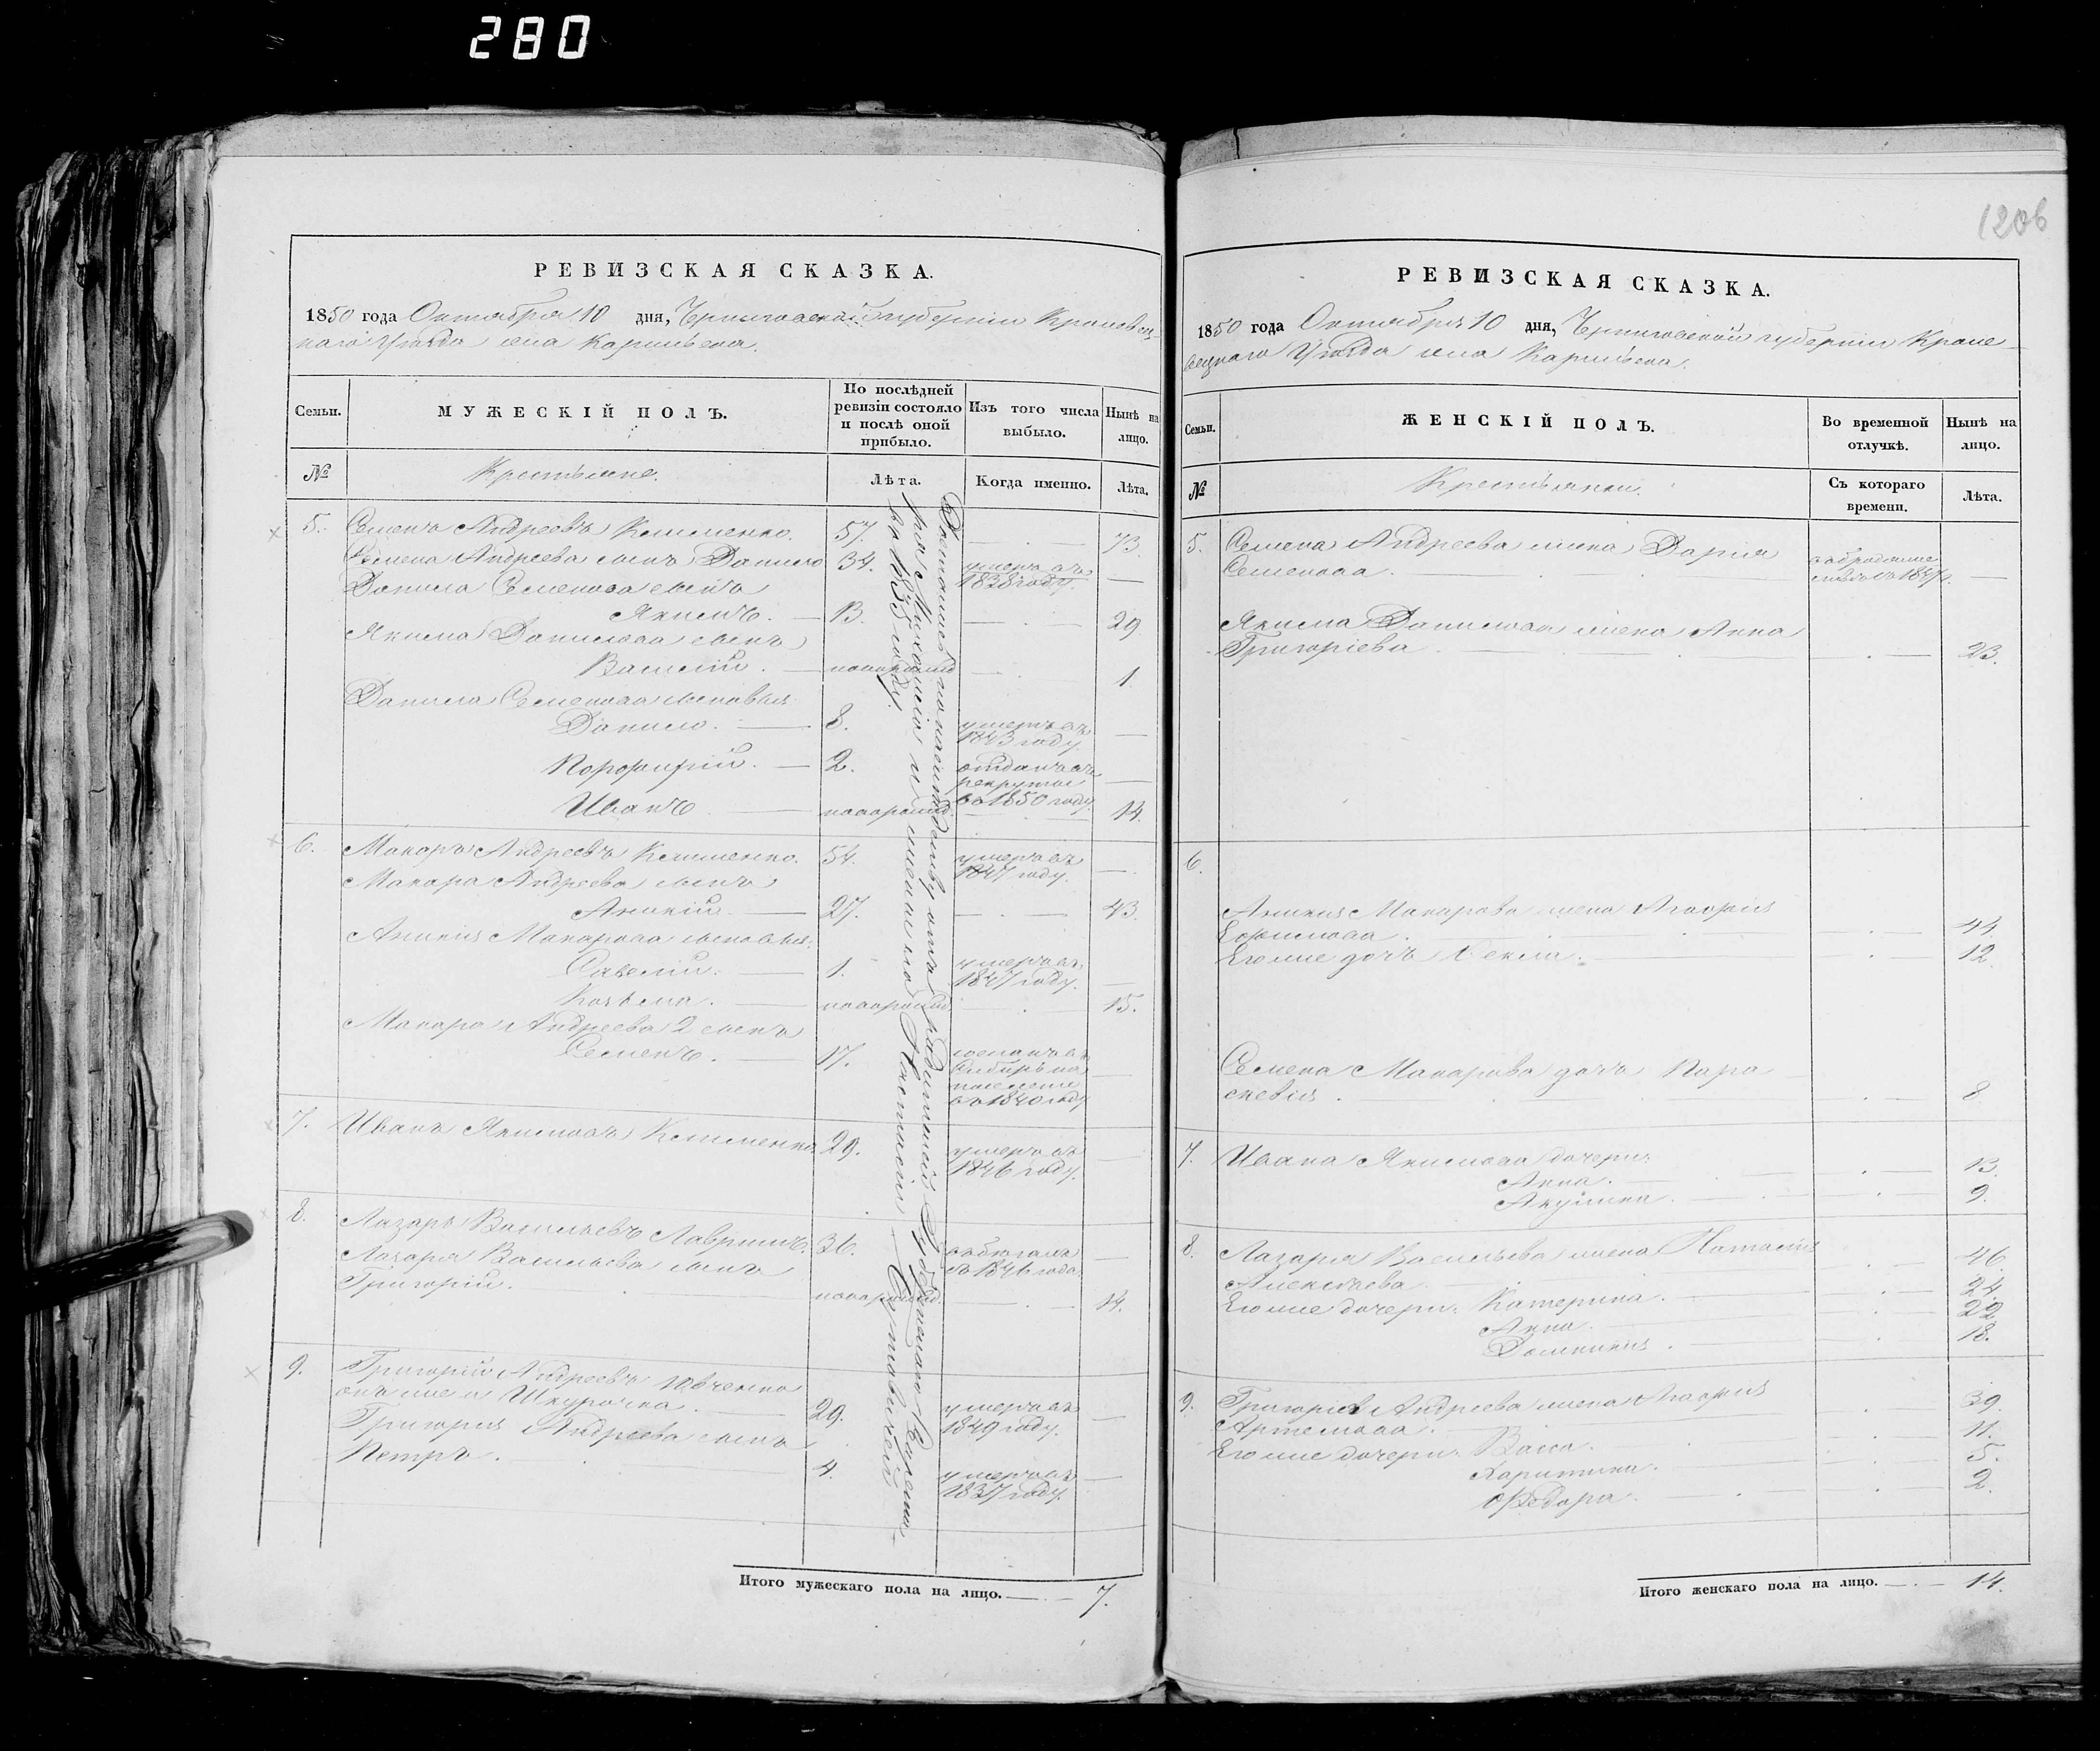 280
1206
РЕВИЗСКАЯ СКАЗКА.
1850 года Октября 10 дня, Черниговской губернии Кролевец-
каго Уѣзда села
Семьи.
МУЖЕСКІЙ ПОЛЪ.
По послѣдней ревизіи состояло и послѣ оной прибыло.
Изъ того числа выбыло.
Нынѣ на лицо.
№
Крестьяне.
Лѣта.
Когда именно.
Лѣта.
5. Семенъ Андреевъ Клименко. 57. — 73.
Семена Андреева сынъ Данило 34. умеръ въ 1838 году. —
Данила Семенова сынъ
Якимъ. — 13. — 29.
Якима Данилова сынъ
Василій. — новорожд. — 1.
Данила Семенова сыновья
Данило. — 8. умеръ въ 1843 году. —
Порфирій. — 2. отданъ въ рекруты въ 1850 году. —
Иванъ — новорожд. — 14.
6. Макаръ Андреевъ Клименко. 54. умеръ въ 1847 году. —
Макара Андреева сынъ
Аникій. — 27. — 43.
Аникія Макарова сыновья:
Савелій. — 1. умеръ въ 1847 году. —
Козьма. — новорожд. — 15.
Макара Андреева 2 сынъ
Семенъ. — 17. сосланъ въ Сибирь на поселеніе въ 1840 году —
7. Иванъ Якимовъ Клименко 29. умеръ въ 1846 году. —
8. Лазарь Васильевъ 36. въ бѣгахъ съ 1846 года. —
Лазаря Васильева сынъ
Григорій. новорожд. — 14.
9. Григорій Андреевъ
онъ же и Шкурочка. — 29. умеръ въ 1849 году. —
Григорія Андреева сынъ
Петръ. — 4. умеръ въ 1837 году. —
Досталися по наслѣдству отъ
въ 1835 году.
Итого мужескаго пола на лицо. — 7.
РЕВИЗСКАЯ СКАЗКА.
1850 года Октября 10 дня, Черниговской губерніи Кроле-
вецкаго Уѣзда села
Семьи.
ЖЕНСКІЙ ПОЛЪ.
Во временной отлучкѣ.
Нынѣ на лицо.
№
Крестьянки.
Съ котораго времени.
Лѣта.
5. Семена Андреева жена Дарія
Семенова. —
Якима Данилова жена Анна
Григоріева — 23.
6.
Аникія Макарова жена Агафія
Ефимова. — 44.
Его же дочь Текла. — 12.
Семена Макарова дочь Пара
скевія. — 8.
7. Ивана Якимова дочери:
Анна. — 13.
Акулина. — 9.
8. Лазаря Васильева жена Наталія
Алексѣева. — 46.
Его же дочери: Катерина. — 24.
Анна. — 22.
Домникія. — 18.
9. Григорія Андреева жена Агафія
Артемова. — 39.
Его же дочери: Васса. — 11.
Харитина. — 5.
Ѳедора. — 2.
Итого женскаго пола на лицо. — 14.